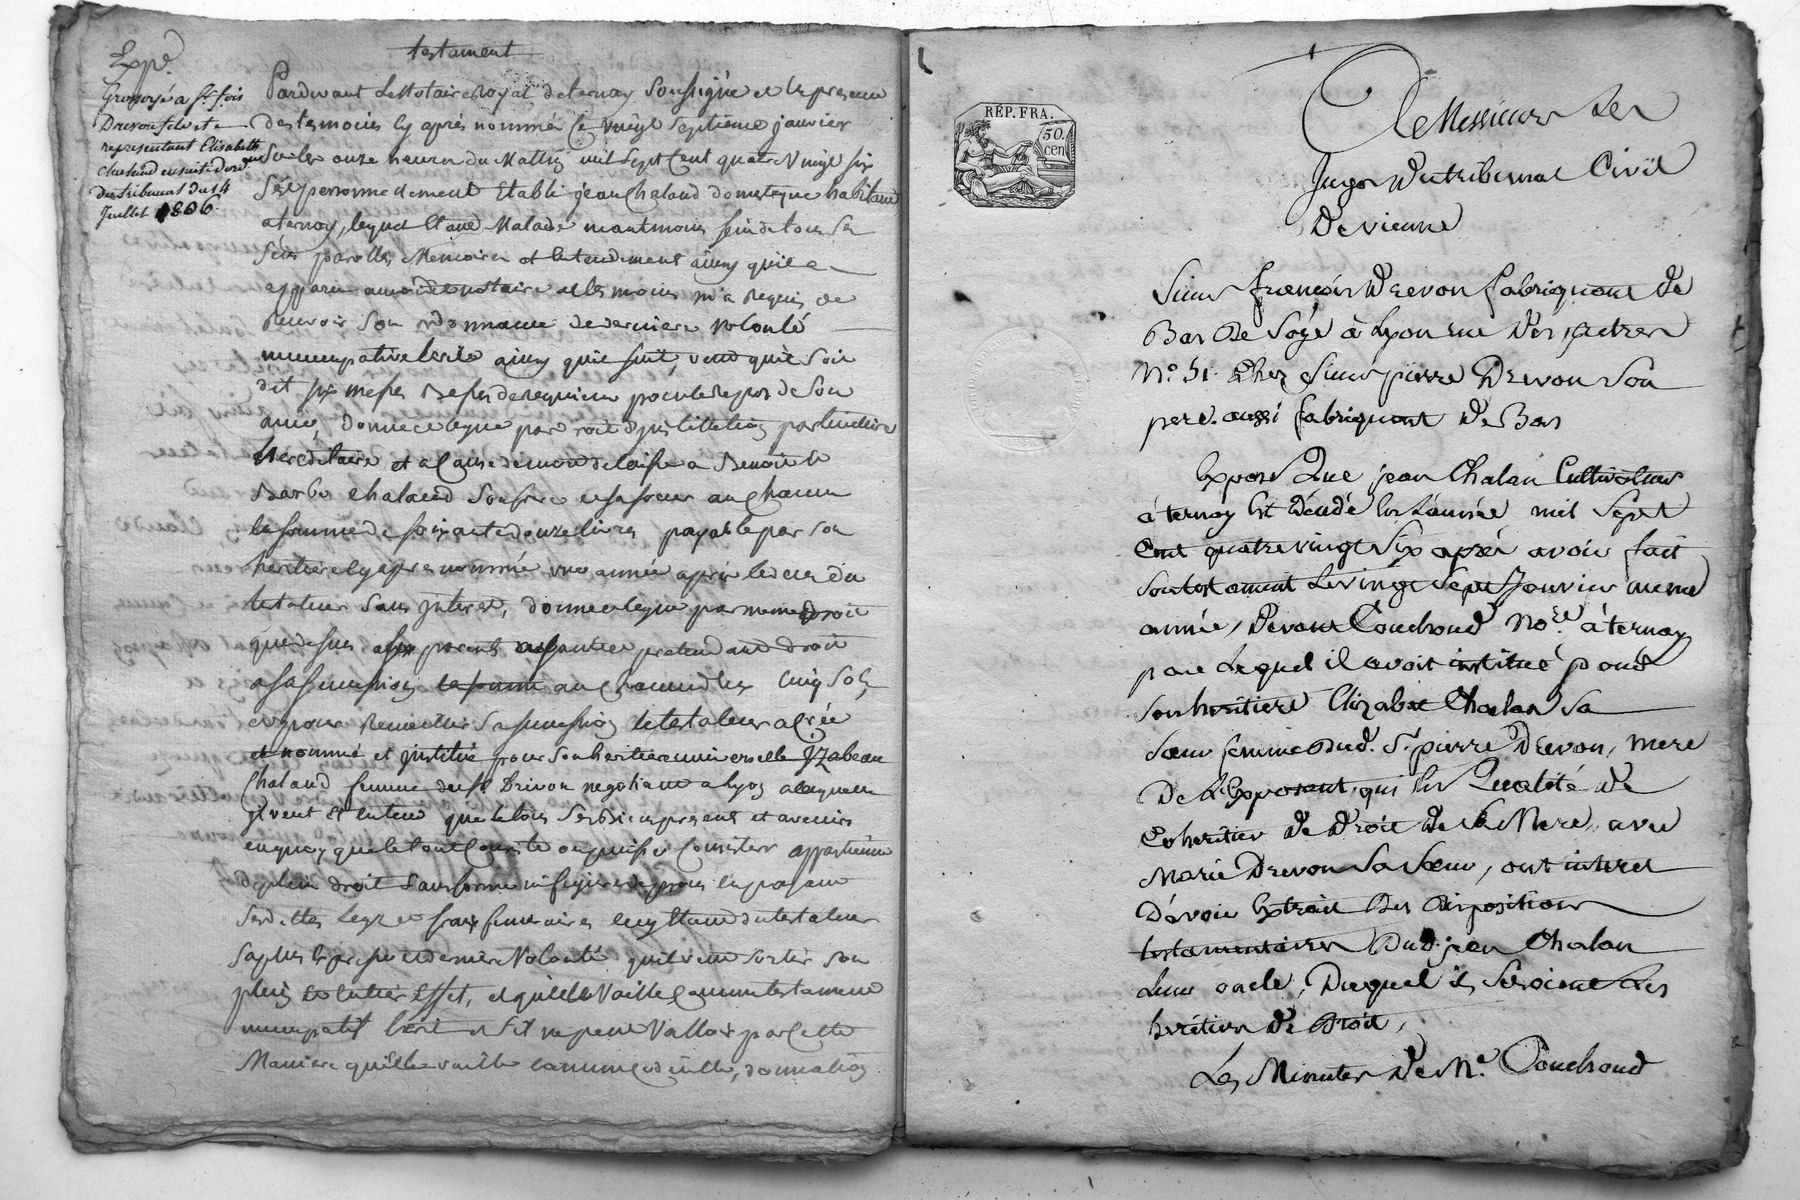 Expé.
Grossoyé a Sr fois
Drevon fils et
representant Elisabeth
Chaland ensuite d'ord
du tribunal du 14
Juillet 1806.
testament
Pardevant Le Notaire Royal de ternay Soussigné et en presence
des temoins cy après nommés Ce vingt Septieme janvier
Sur les onze heures du Mattin mil Sept Cent quatre Vingt six
S'est personnellement Etabli jean Chaland domestique habitant
a ternay, lequel Etant Malade neantmoins sein de tous Ses
Sens parolle, Memoire et Entendement ainsy quil a
apparu a moi dit notaire et temoins m'a Requis de
Recevoir Son ordonnance de derniere Volonté
nuncupative Ecrite ainsy que suit, veut qu'il Soit
dit six messes Basses de requiem pour le Repos de Son
ame, donne et legue par droit d'institution particuliere
Hereditaire et a Cause de mort de laisse a Benoit et
Barbe Chaland Son frere et sa soeur a un Chacun
la somme de soixante douze livres payable par son
heritiere cy après nommée une année après le deces du
testateur Sans interet, donne et legue par meme Droit
que dessus a ses parents et autres pretendant droit
a sa succession la somme a un Chacun d'eux Cinq Sols
et pour Recueillir Sa succession le testateur a Crée
et nommé et institué pour Son heritiere universelle Yzabeau
Chaland femme de Sr Drivon negotiant a lyon a laquelle
il veut et entend que tous Ses Biens presents et avenirs
en quoy que le tout Consiste ou puisse Consister appartienne
de plein droit Sans forme ni figure de procès en payant
Ses dettes legs et frais funeraires le cy Etant du testateur
Sa plus expresse et derniere Volonté quil veut Sortir son
plein et Entier Effet, et qu'elle Vaille Comme testament
nuncupatif Ecrit et S'il ne peut Valloir par Cette
Maniere qu'elle vaille comme codicille, donnation
RÉP. FRA.
50.
cen
A Messieurs Les
Juges Du tribunal Civil
De vienne
Sieur françois Drevon fabriquant de
Bas De Soye à Lyon rue Des
N.º 51. Chez Sieur pierre Drevon Son
pere. aussi fabriquant de Bas
Expose Que jean Chalan Cultivateur
à ternay Est décédé En L'année mil Sept
Cent quatre vingt Six après avoir fait
Son testament Le vingt Sept Janvier meme
année, Devant Couchoud No.re à ternay
par Lequel il avoit institué pour
Son heritiere Elizabet Chalan Sa
Sœur femme dud. Sr. pierre Drevon, mere
De L'Exposant, qui En Qualité de
Coheritier de droit de Sa Mere, avec
Marie Drevon Sa Sœur, ont interet
D'avoir Extrait Des Dispositions
testamentaires Dud. jean Chalan
Leur oncle, Duquel ils Seroient Les
heritiers de Droit,
Les Minutes De M.e Couchoud